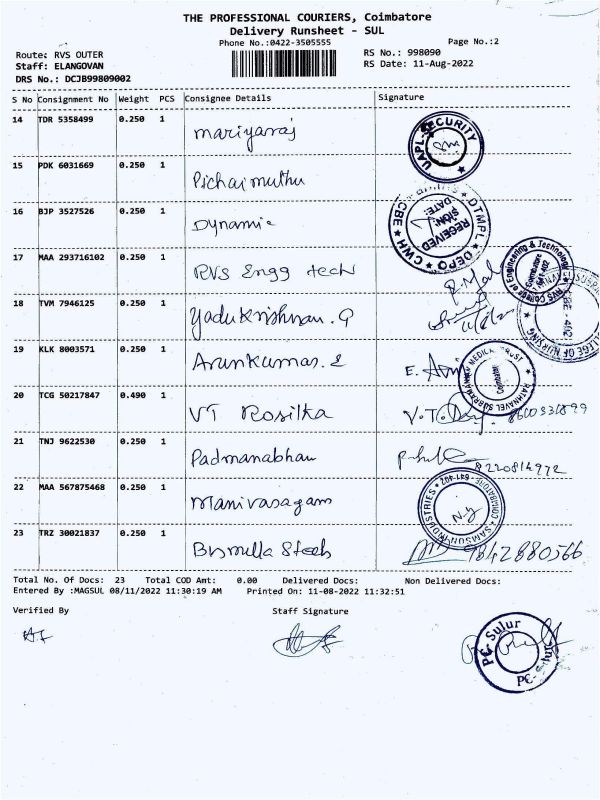 THE PROFESSIONAL COURIERS, Coimbatore
Delivery Runsheet - SUL
Phone No.:0422-3505555
Page No.:2
Route: RVS OUTER
RS No.: 998090
Staff: ELANGOVAN
RS Date: 11-Aug-2022
DRS No.: DCJB99809002
S No Consignment No Weight PCS Consignee Details Signature
14 TDR 5358499 0.250 1 Mariyarraj
UAPL SECURITY
15 PDK 6031669 0.250 1 Pichaimuthu
16 BJP 3527526 0.250 1 Dynamic
DTMPL DEPO CWH CBE
RECEIVED
SIGN:
DATE:
17 MAA 293716102 0.250 1 RVS Engg tech
RVS College of Engineering & Technology
Coimbatore
641 402
18 TVM 7946125 0.250 1 Yadukrishnan. G
COLLEGE OF NURSING
19 KLK 8003571 0.250 1 Arunkumar. E
RATHNAVEL SUBRAMANIAM MEDICAL TRUST
Coimbatore
20 TCG 50217847 0.490 1 VT Rosilka
21 TNJ 9622530 0.250 1 Padmanabhan
8220814972
22 MAA 567875468 0.250 1 Manivasagam
SAMSUN INDUSTRIES COIMBATORE - 641 402
23 TRZ 30021837 0.250 1 Bismilla Steels
9842880566
Total No. Of Docs: 23 Total COD Amt: 0.00 Delivered Docs: Non Delivered Docs:
Entered By :MAGSUL 08/11/2022 11:30:19 AM Printed On: 11-08-2022 11:32:51
Verified By Staff Signature
PC- Sulur
PC- Sulur